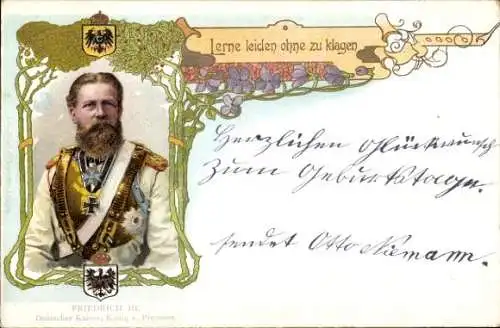 Lerne leiden ohne zu klagen
Herzlichen Glückwunsch
zum Geburtstage.
sendet Otto Niemann.
FRIEDRICH III.
Deutscher Kaiser, König v. Preussen